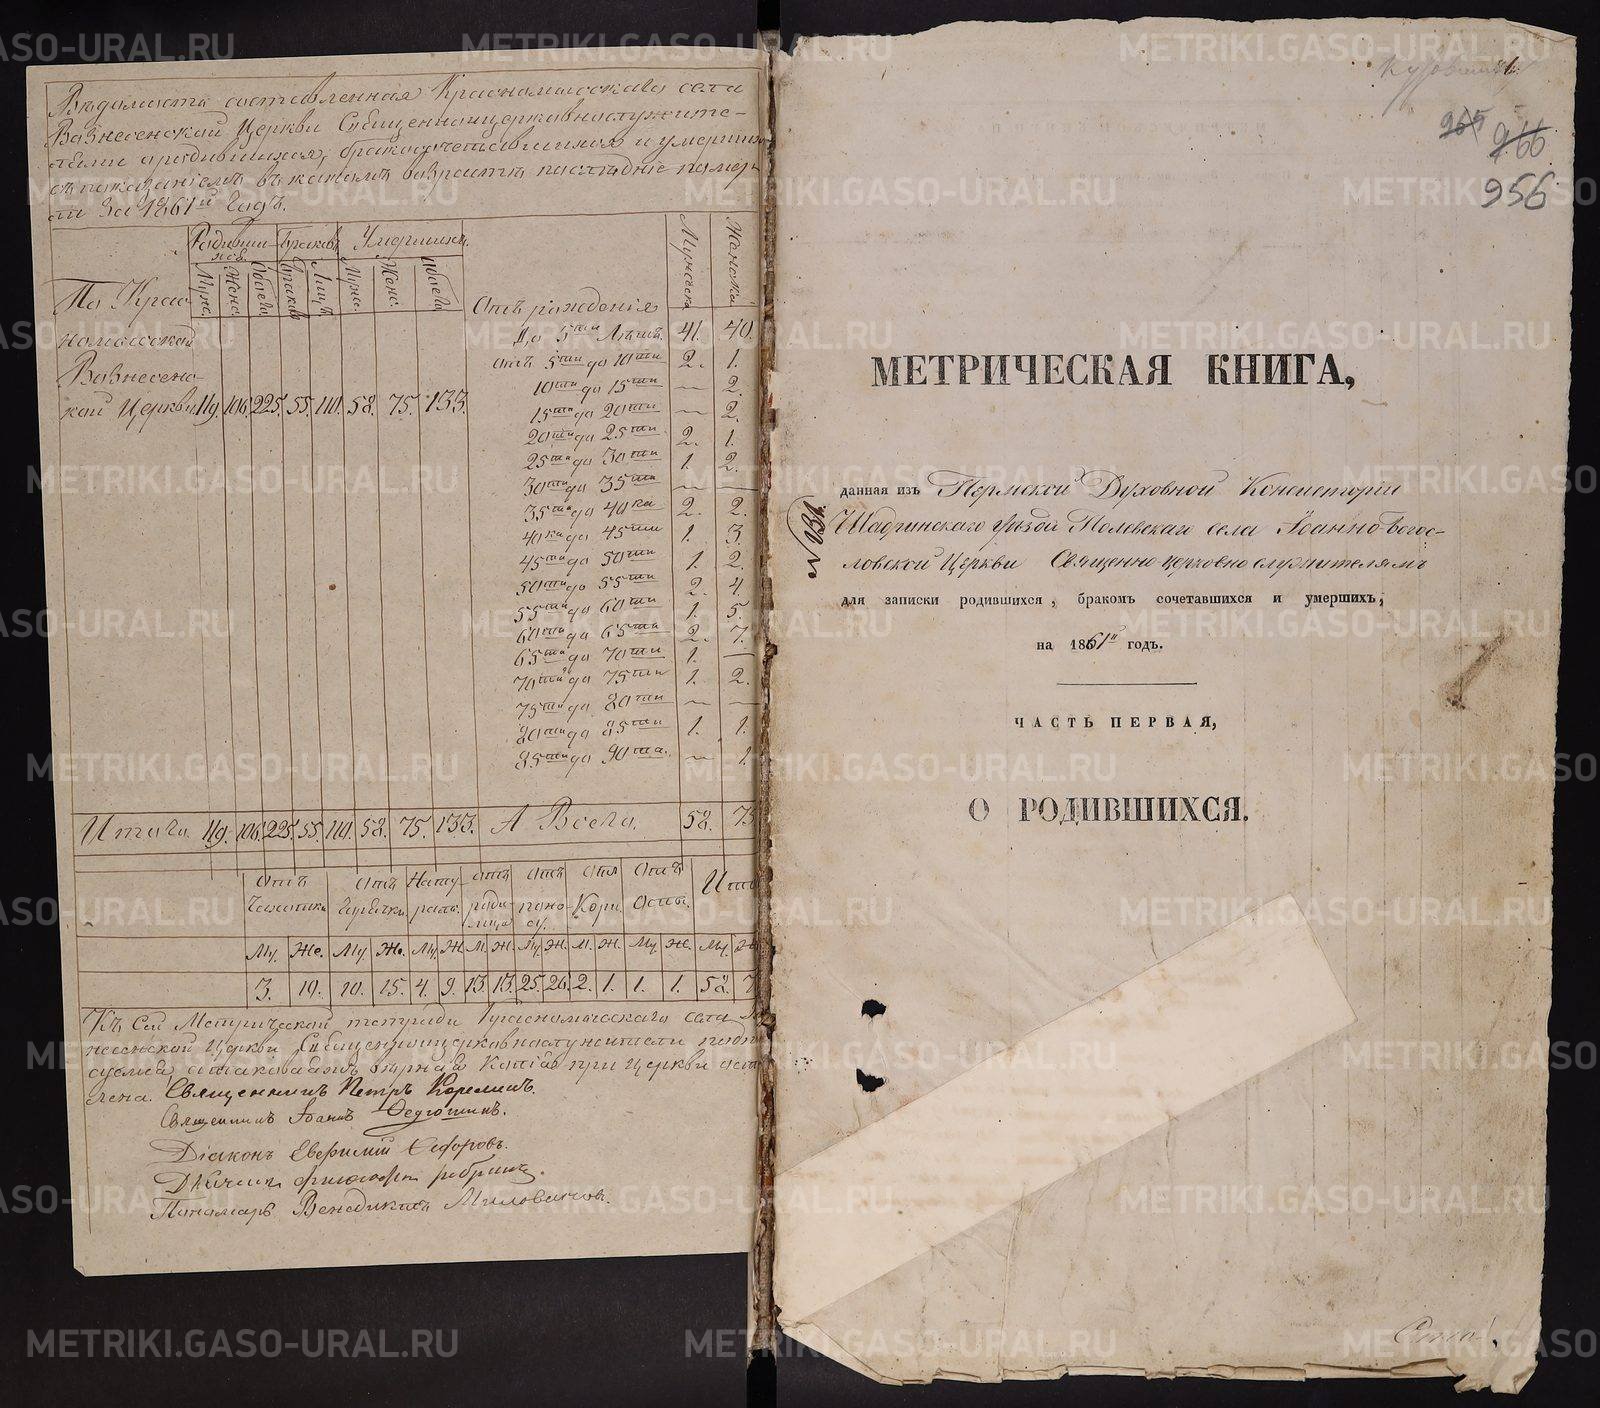 Ведомость составленная Красномысскаго села
Вознесенской Церкви Священноцерковнослужите-
лями о родившихся, бракосочетавшихся и умерших
съ показаніемъ въ какомъ возрастѣ послѣдніе помер-
ли за 1861й Годъ.
Родивши- Браковъ Умершихъ.
хся
Муж. Жен. Обоего Браковъ Лицъ Муж. Жен. Обоего
Мужска Женска
По Крас-
номысской
Вознесен-
ской Церкви 119. 106. 225. 55. 110. 58. 75. 133.
Отъ рожденія
До 5ти Лѣтъ. 41. 40.
отъ 5ти до 10ти 2. 1.
10ти до 15ти — 2.
15ти до 20ти — 2.
20ти до 25ти 2. 1.
25ти до 30ти 1. 2.
30ти до 35ти — —
35ти до 40ка 2. 2.
40ка до 45ти 1. 3.
45ти до 50ти 1. 2.
50ти до 55ти 2. 4.
55ти до 60ти 1. 5.
60ти до 65ти 2. 7.
65ти до 70ти 1. —
70ти до 75ти 1. 2.
75ти до 80ти — —
80ти до 85ти 1. 1.
85ти до 90та. — 1.
Итого 119. 106. 225. 55. 110. 58. 75. 133. А Всего. 58. 75
Отъ Отъ Нату- отъ отъ отъ Отъ Ито
Чахотки Горячки рально. роди- поно- Кори. Оспы.
мца су.
Му. Же. Му. Же. Му. Ж. М. Ж. Му. Ж. М. Ж. Му. Ж. Му. Ж
3. 10. 10. 15. 4. 9. 13. 13. 25. 26. 2. 1. 1. 1. 58. 7
Къ Сей Метрической тетради Красномысскаго села Воз-
несенской Церкви Священноцерковнослужители подпи
суемся, а таковая вѣрная Копія при Церкви оста
лена. Священникъ Петръ Корелинъ.
Священникъ Іоаннъ
Діаконъ Еверимій
Дьячекъ
Пономарь Венедиктъ Миловановъ.
965 966
956
МЕТРИЧЕСКАЯ КНИГА,
данная изъ Пермской Духовной Консисторіи
Шадринскаго уѣзда Полевскаго села Іоанно-Богос-
№ 131. ловской Церкви Священно-церковно служителямъ
для записки родившихся, бракомъ сочетавшихся и умершихъ,
на 1861й годъ.
ЧАСТЬ ПЕРВАЯ,
О РОДИВШИХСЯ.
METRIKI.GASO-URAL.RU